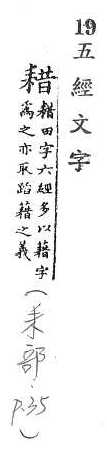 19
五經文字
耤 耤田字六經多以藉字
爲之亦取蹈藉之義
(耒部.
p.35)